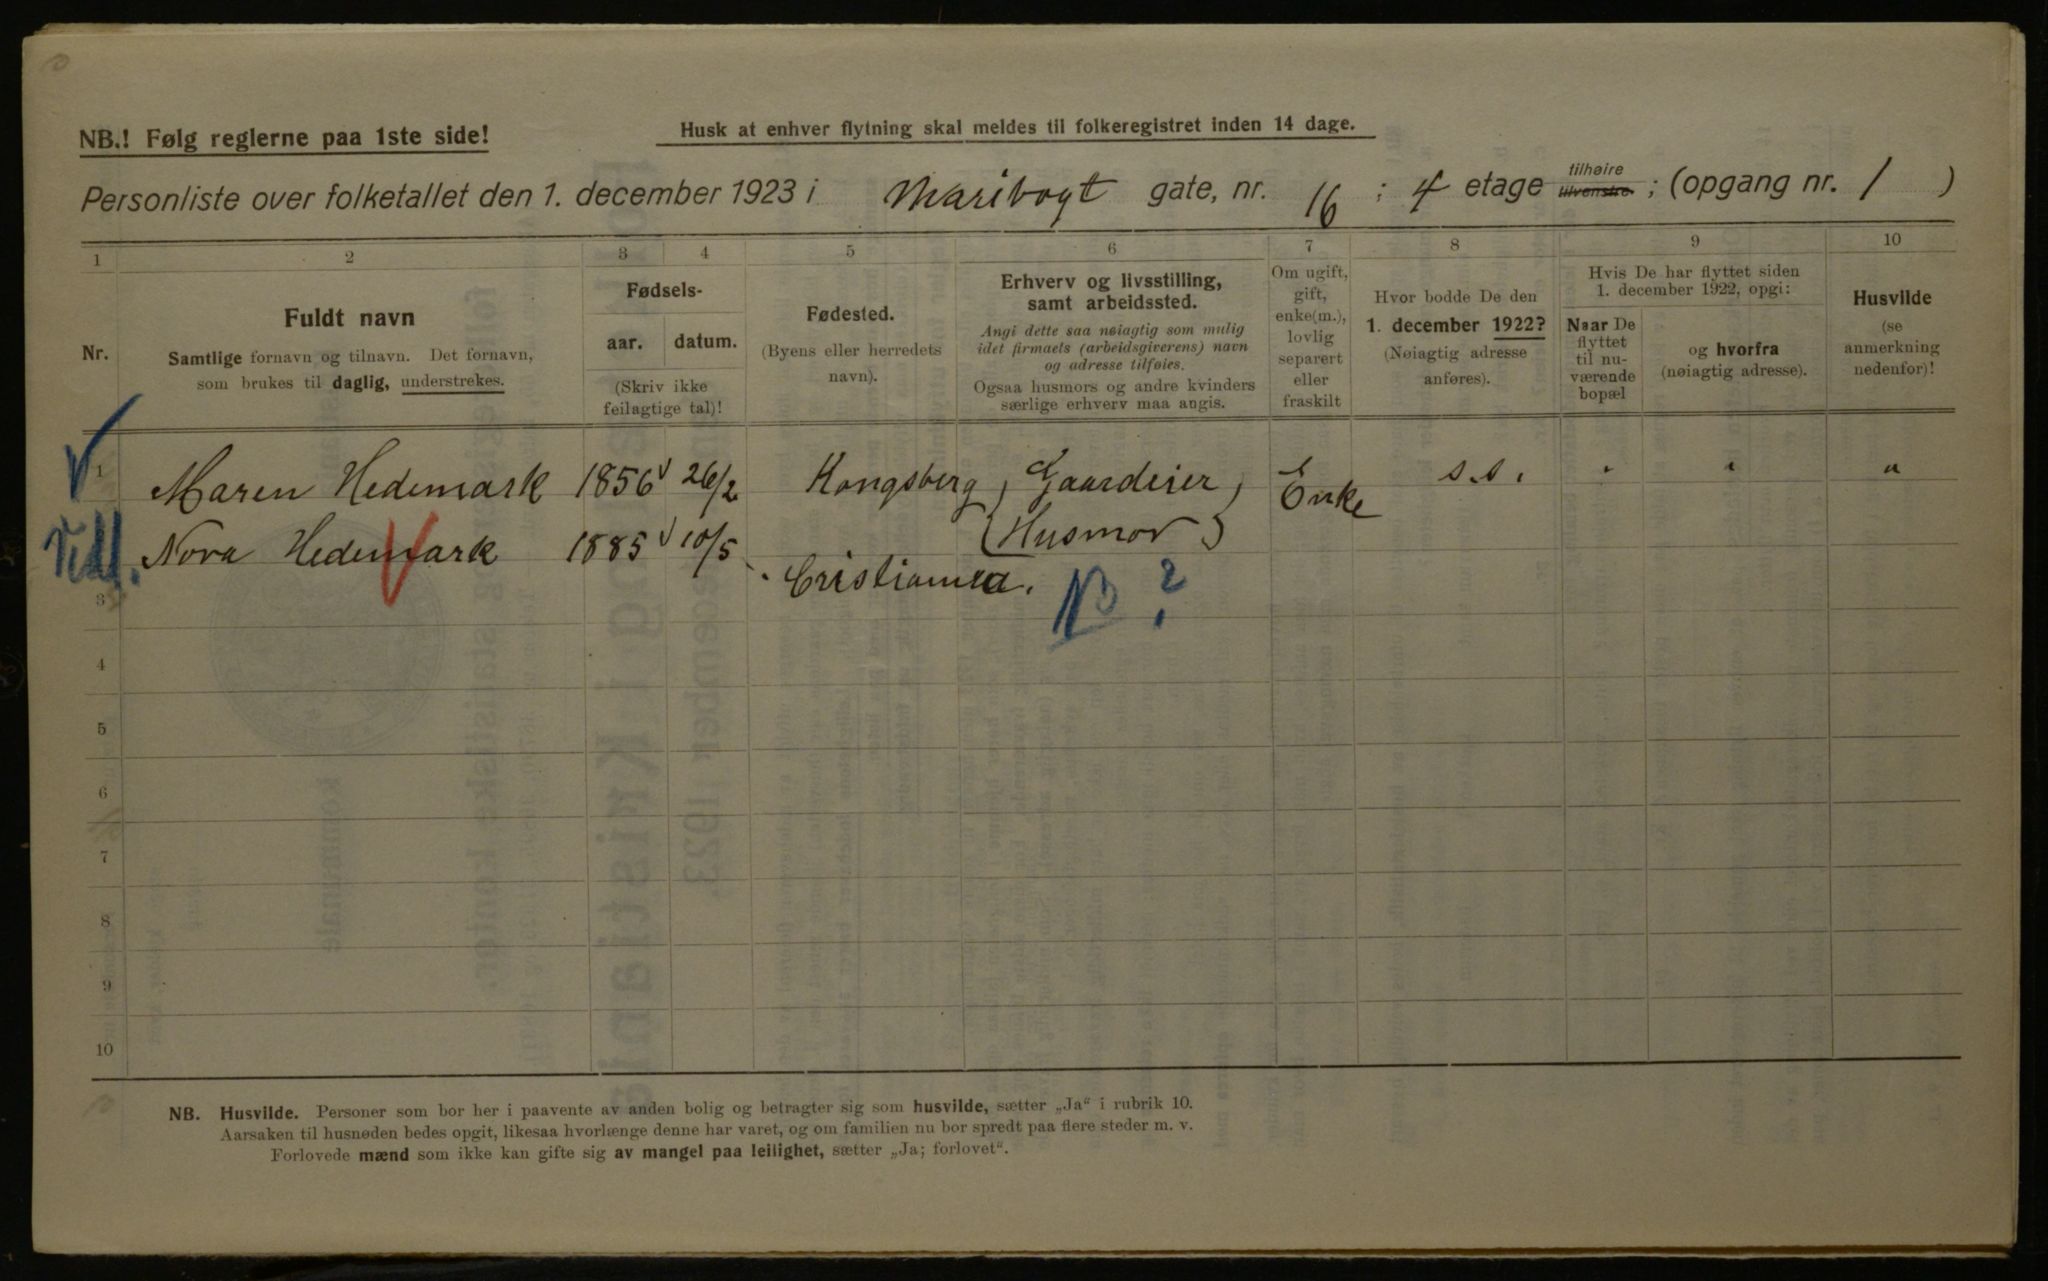 NB.! Følg reglerne paa 1ste side!
Husk at enhver flytning skal meldes til folkeregistret inden 14 dage.
Personliste over folketallet den 1. december 1923 i Maribogt gate, nr. 16 ; 4 etage tilhøire tilvenstre ; (opgang nr. 1 )
1 2 3 4 5 6 7 8 9 10
Nr.
Fuldt navn
Samtlige fornavn og tilnavn. Det fornavn,
som brukes til daglig, understrekes.
Fødsels-
aar. datum.
(Skriv ikke
feilagtige tal)!
Fødested.
(Byens eller herredets
navn).
Erhverv og livsstilling,
samt arbeidssted.
Angi dette saa nøiagtig som mulig
idet firmaets (arbeidsgiverens) navn
og adresse tilføies.
Ogsaa husmors og andre kvinders
særlige erhverv maa angis.
Om ugift,
gift,
enke(m.),
lovlig
separert
eller
fraskilt
Hvor bodde De den
1. december 1922?
(Nøiagtig adresse
anføres).
Hvis De har flyttet siden
1. december 1922, opgi:
Naar De
flyttet
til nu-
værende
bopæl
og hvorfra
(nøiagtig adresse).
Husvilde
(se
anmerkning
nedenfor)!
1 Maren Hedemark 1856 26/2 Kongsberg Gaardeier Enke s.s. " " "
(Husmor)
Nora Hedemark 1885 10/5 Cristiania.
NB ?
3
4
5
6
7
8
9
10
NB. Husvilde. Personer som bor her i paavente av anden bolig og betragter sig som husvilde, sætter „Ja“ i rubrik 10.
Aarsaken til husnøden bedes opgit, likesaa hvorlænge denne har varet, og om familien nu bor spredt paa flere steder m. v.
Forlovede mænd som ikke kan gifte sig av mangel paa leilighet, sætter „Ja; forlovet“.